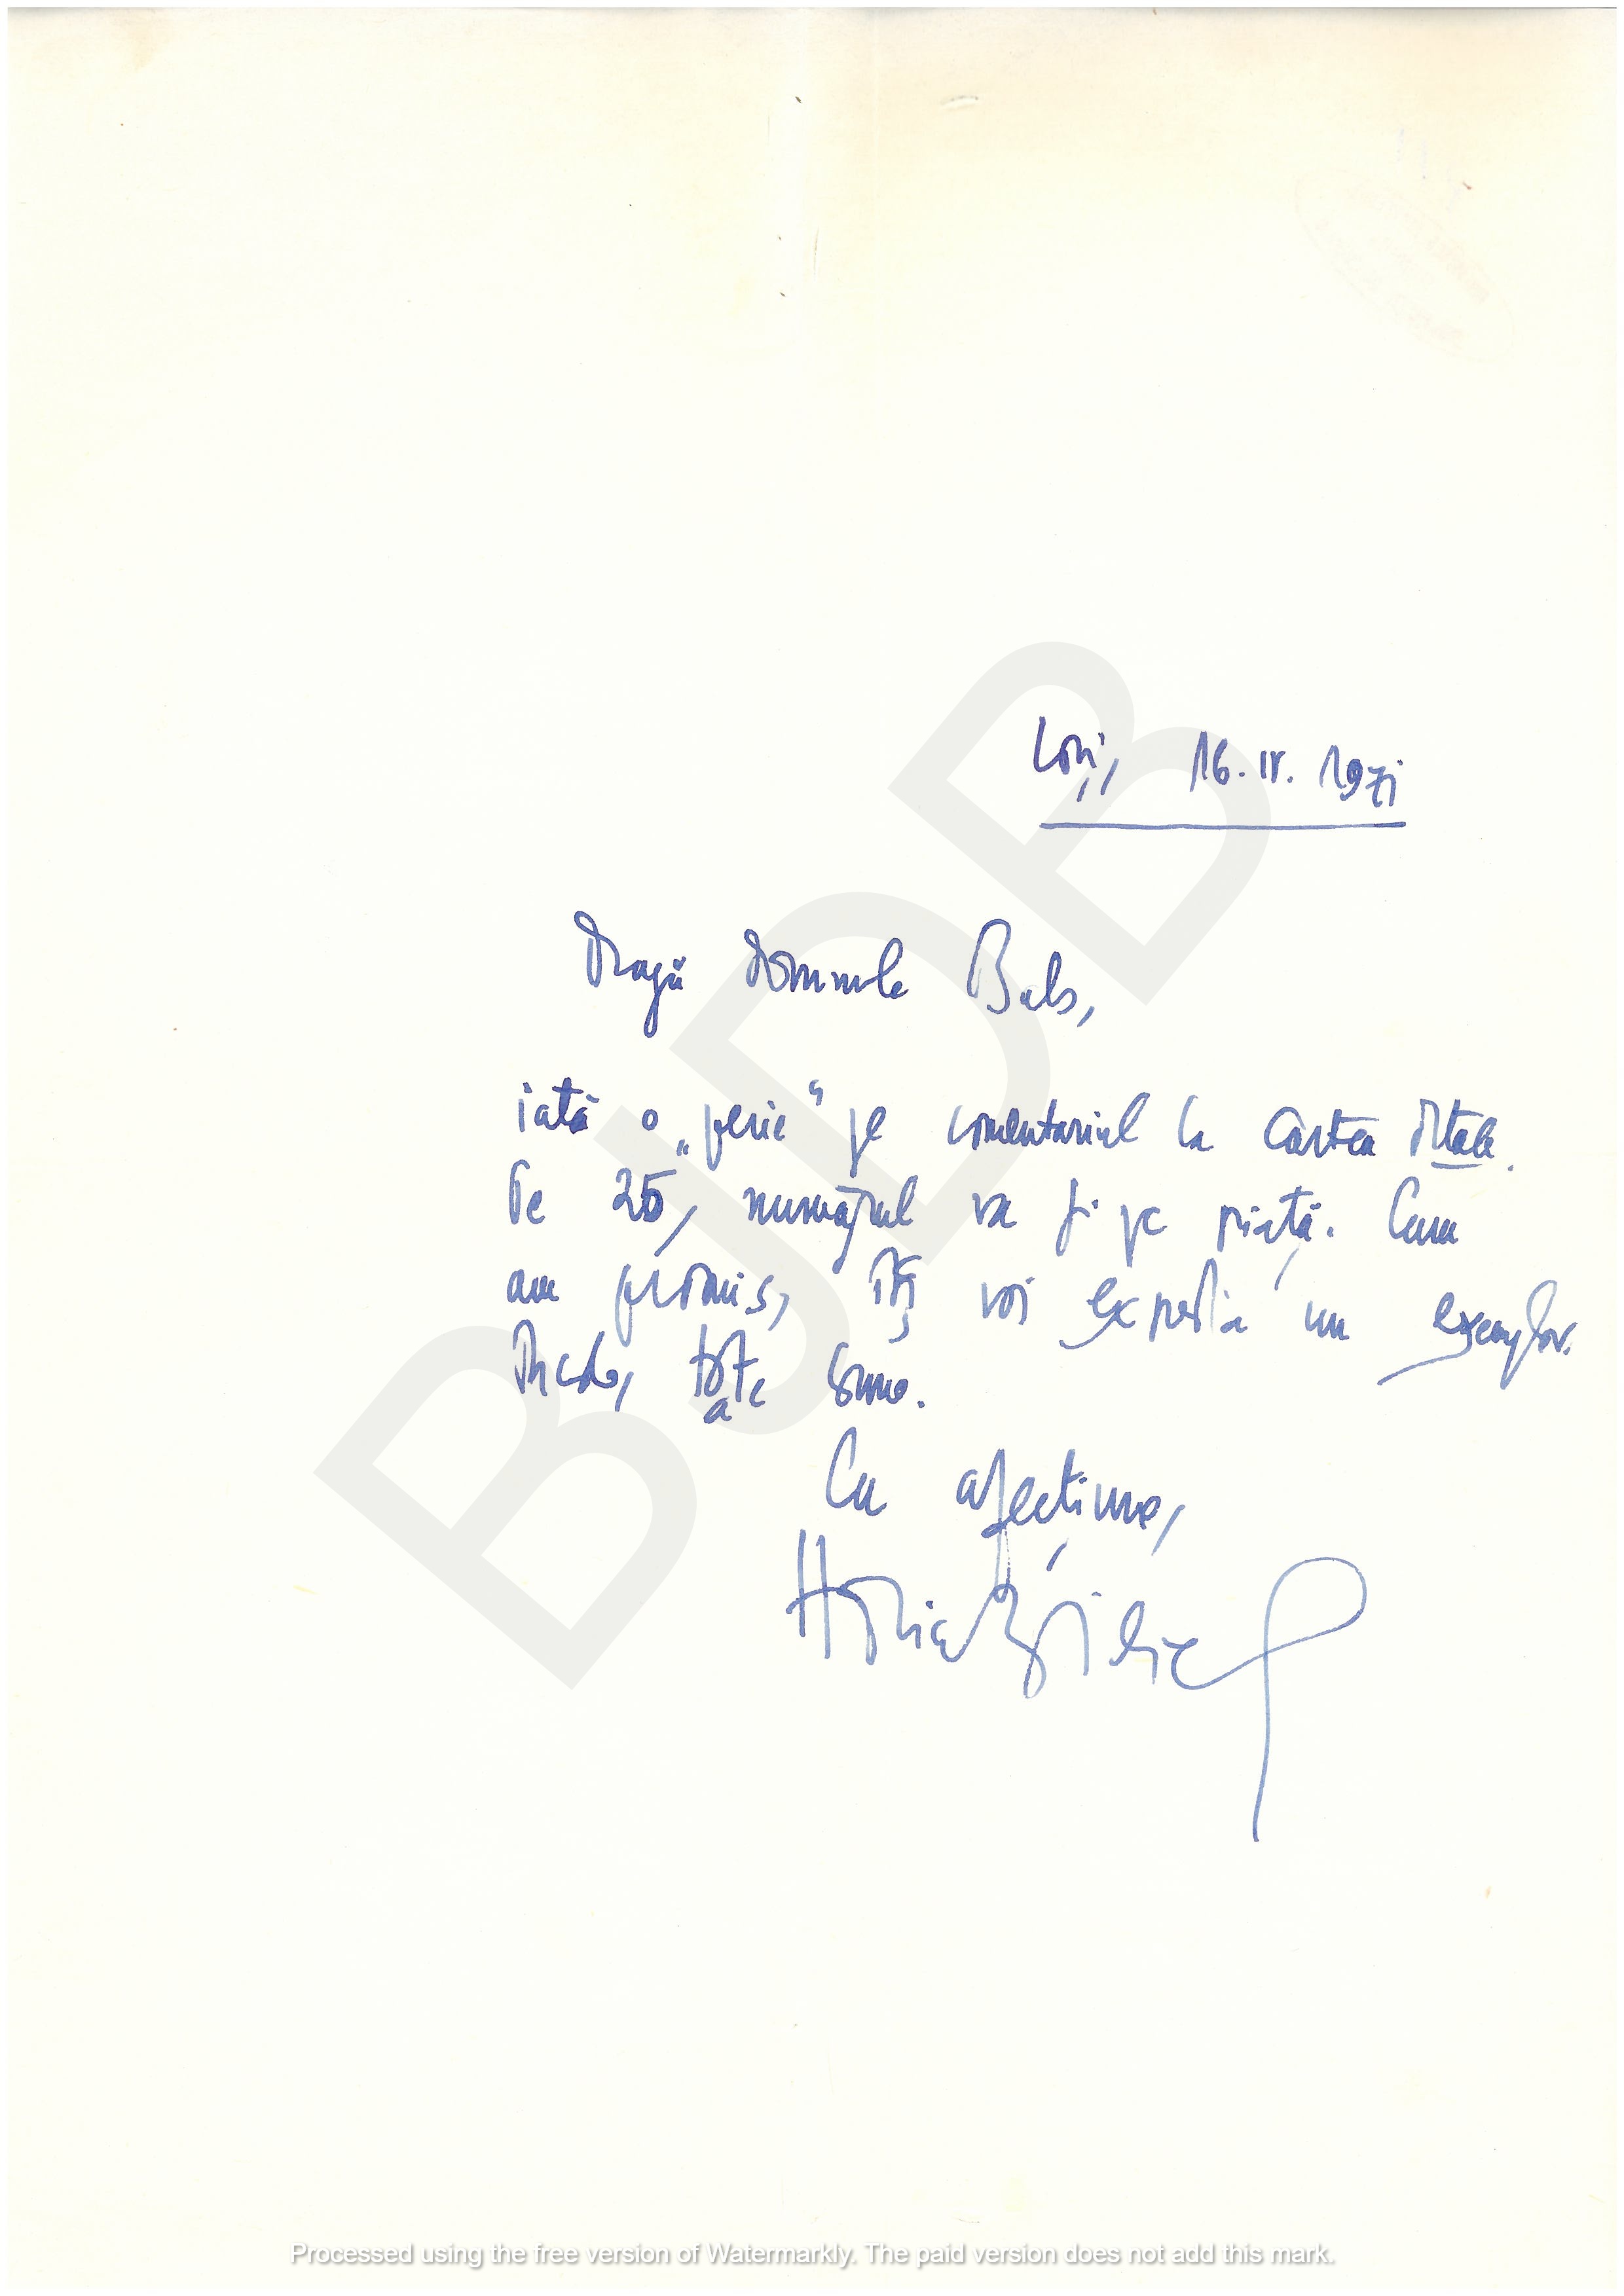 Iași, 16.IV.1971
Dragă Domnule Balș,
iată o „perie” pe comentariul la Cartea
Pe 25, numărul va fi pe piață. Cum
am promis, îți voi expedia un exemplar.
Încolo, toate bune.
Cu afecțiune,
Horia Zilieru
BJDB
Processed using the free version of Watermarkly. The paid version does not add this mark.